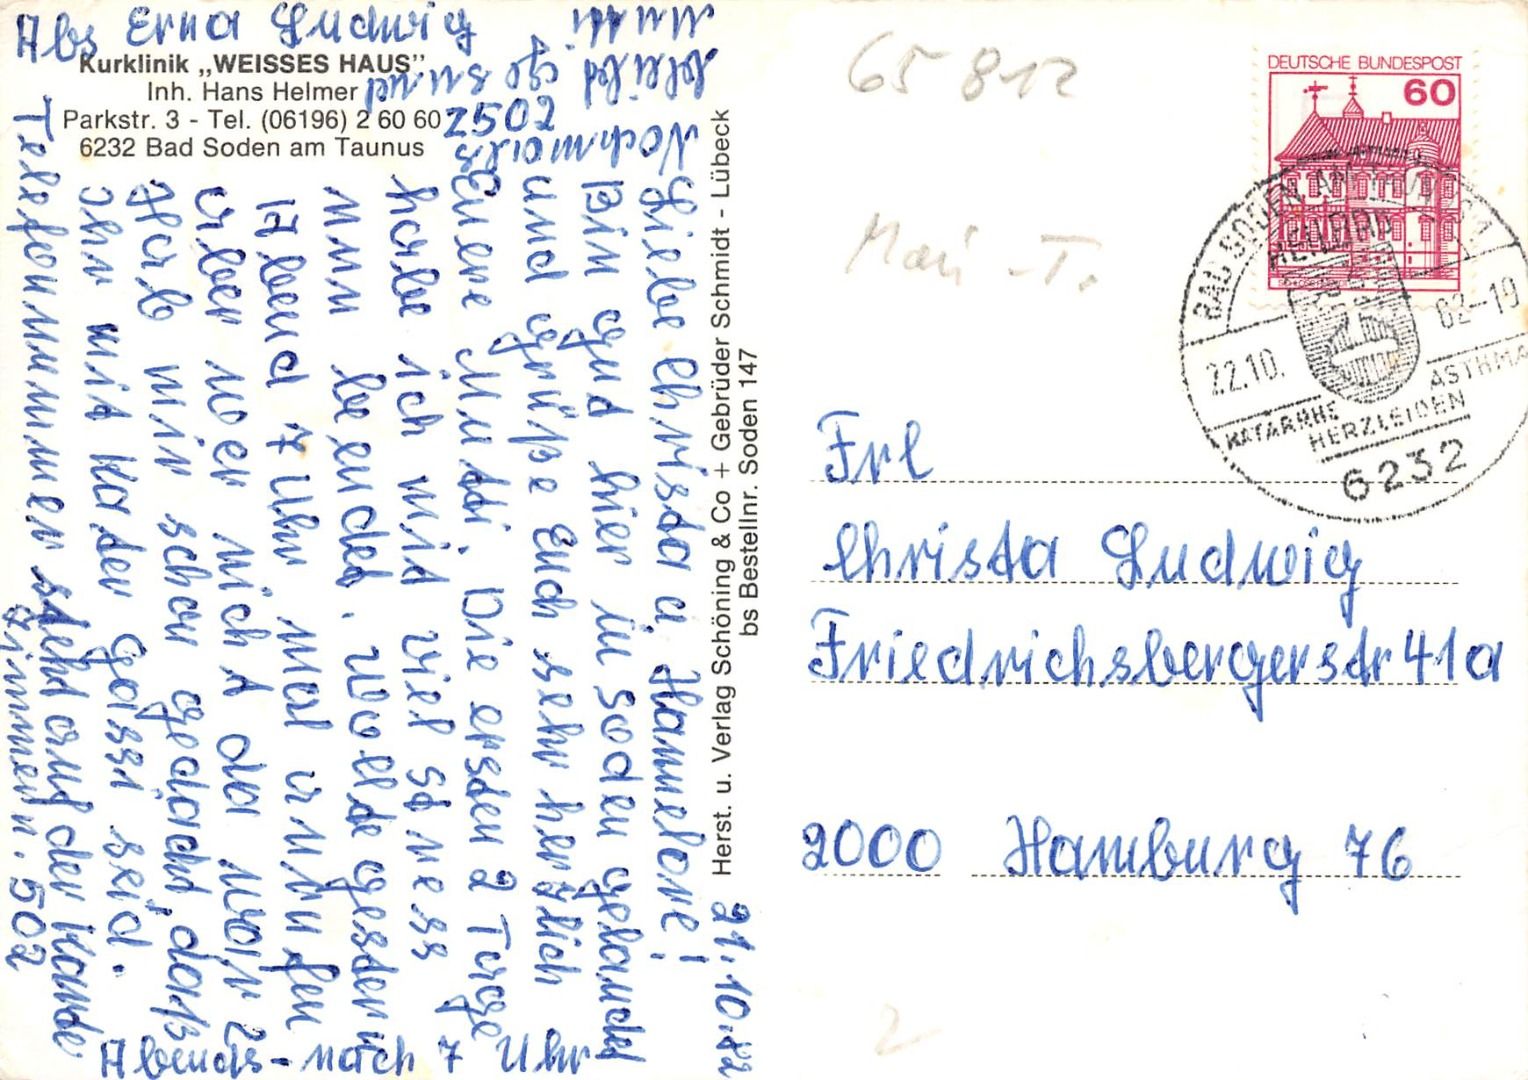 Abs Erna Ludwig
Kurklinik „WEISSES HAUS"
Inh. Hans Helmer
Parkstr. 3 - Tel. (06196) 2 60 60
6232 Bad Soden am Taunus
Z502
21.10.82
Liebe Christa u. Hannelore!
Bin gut hier in Soden gelandet
und grüße Euch sehr herzlich
Euere Mutti. Die ersten 2 Tage
habe ich mit viel stress
nun beendet. Wollte gestern
Abend 7 Uhr mal anrufen
aber wer nicht da war 2
Hab mir schon gedacht, daß
Ihr mit Kater Gassi seid.
Telefonnummer steht auf der Karte
Zimmern. 502
Abends - nach 7 Uhr
Nochmals
bleibt gesund
Mutti
Herst. u. Verlag Schöning & Co + Gebrüder Schmidt - Lübeck
bs Bestellnr. Soden 147
65 812
DEUTSCHE BUNDESPOST
60
BAD SODEN AM TAUNUS
HEILBAD
22.10. 82-19
KATARRHE ASTHMA
HERZLEIDEN
6232
Frl
Christa Ludwig
Friedrichsbergerstr 41a
2000 Hamburg 76
2